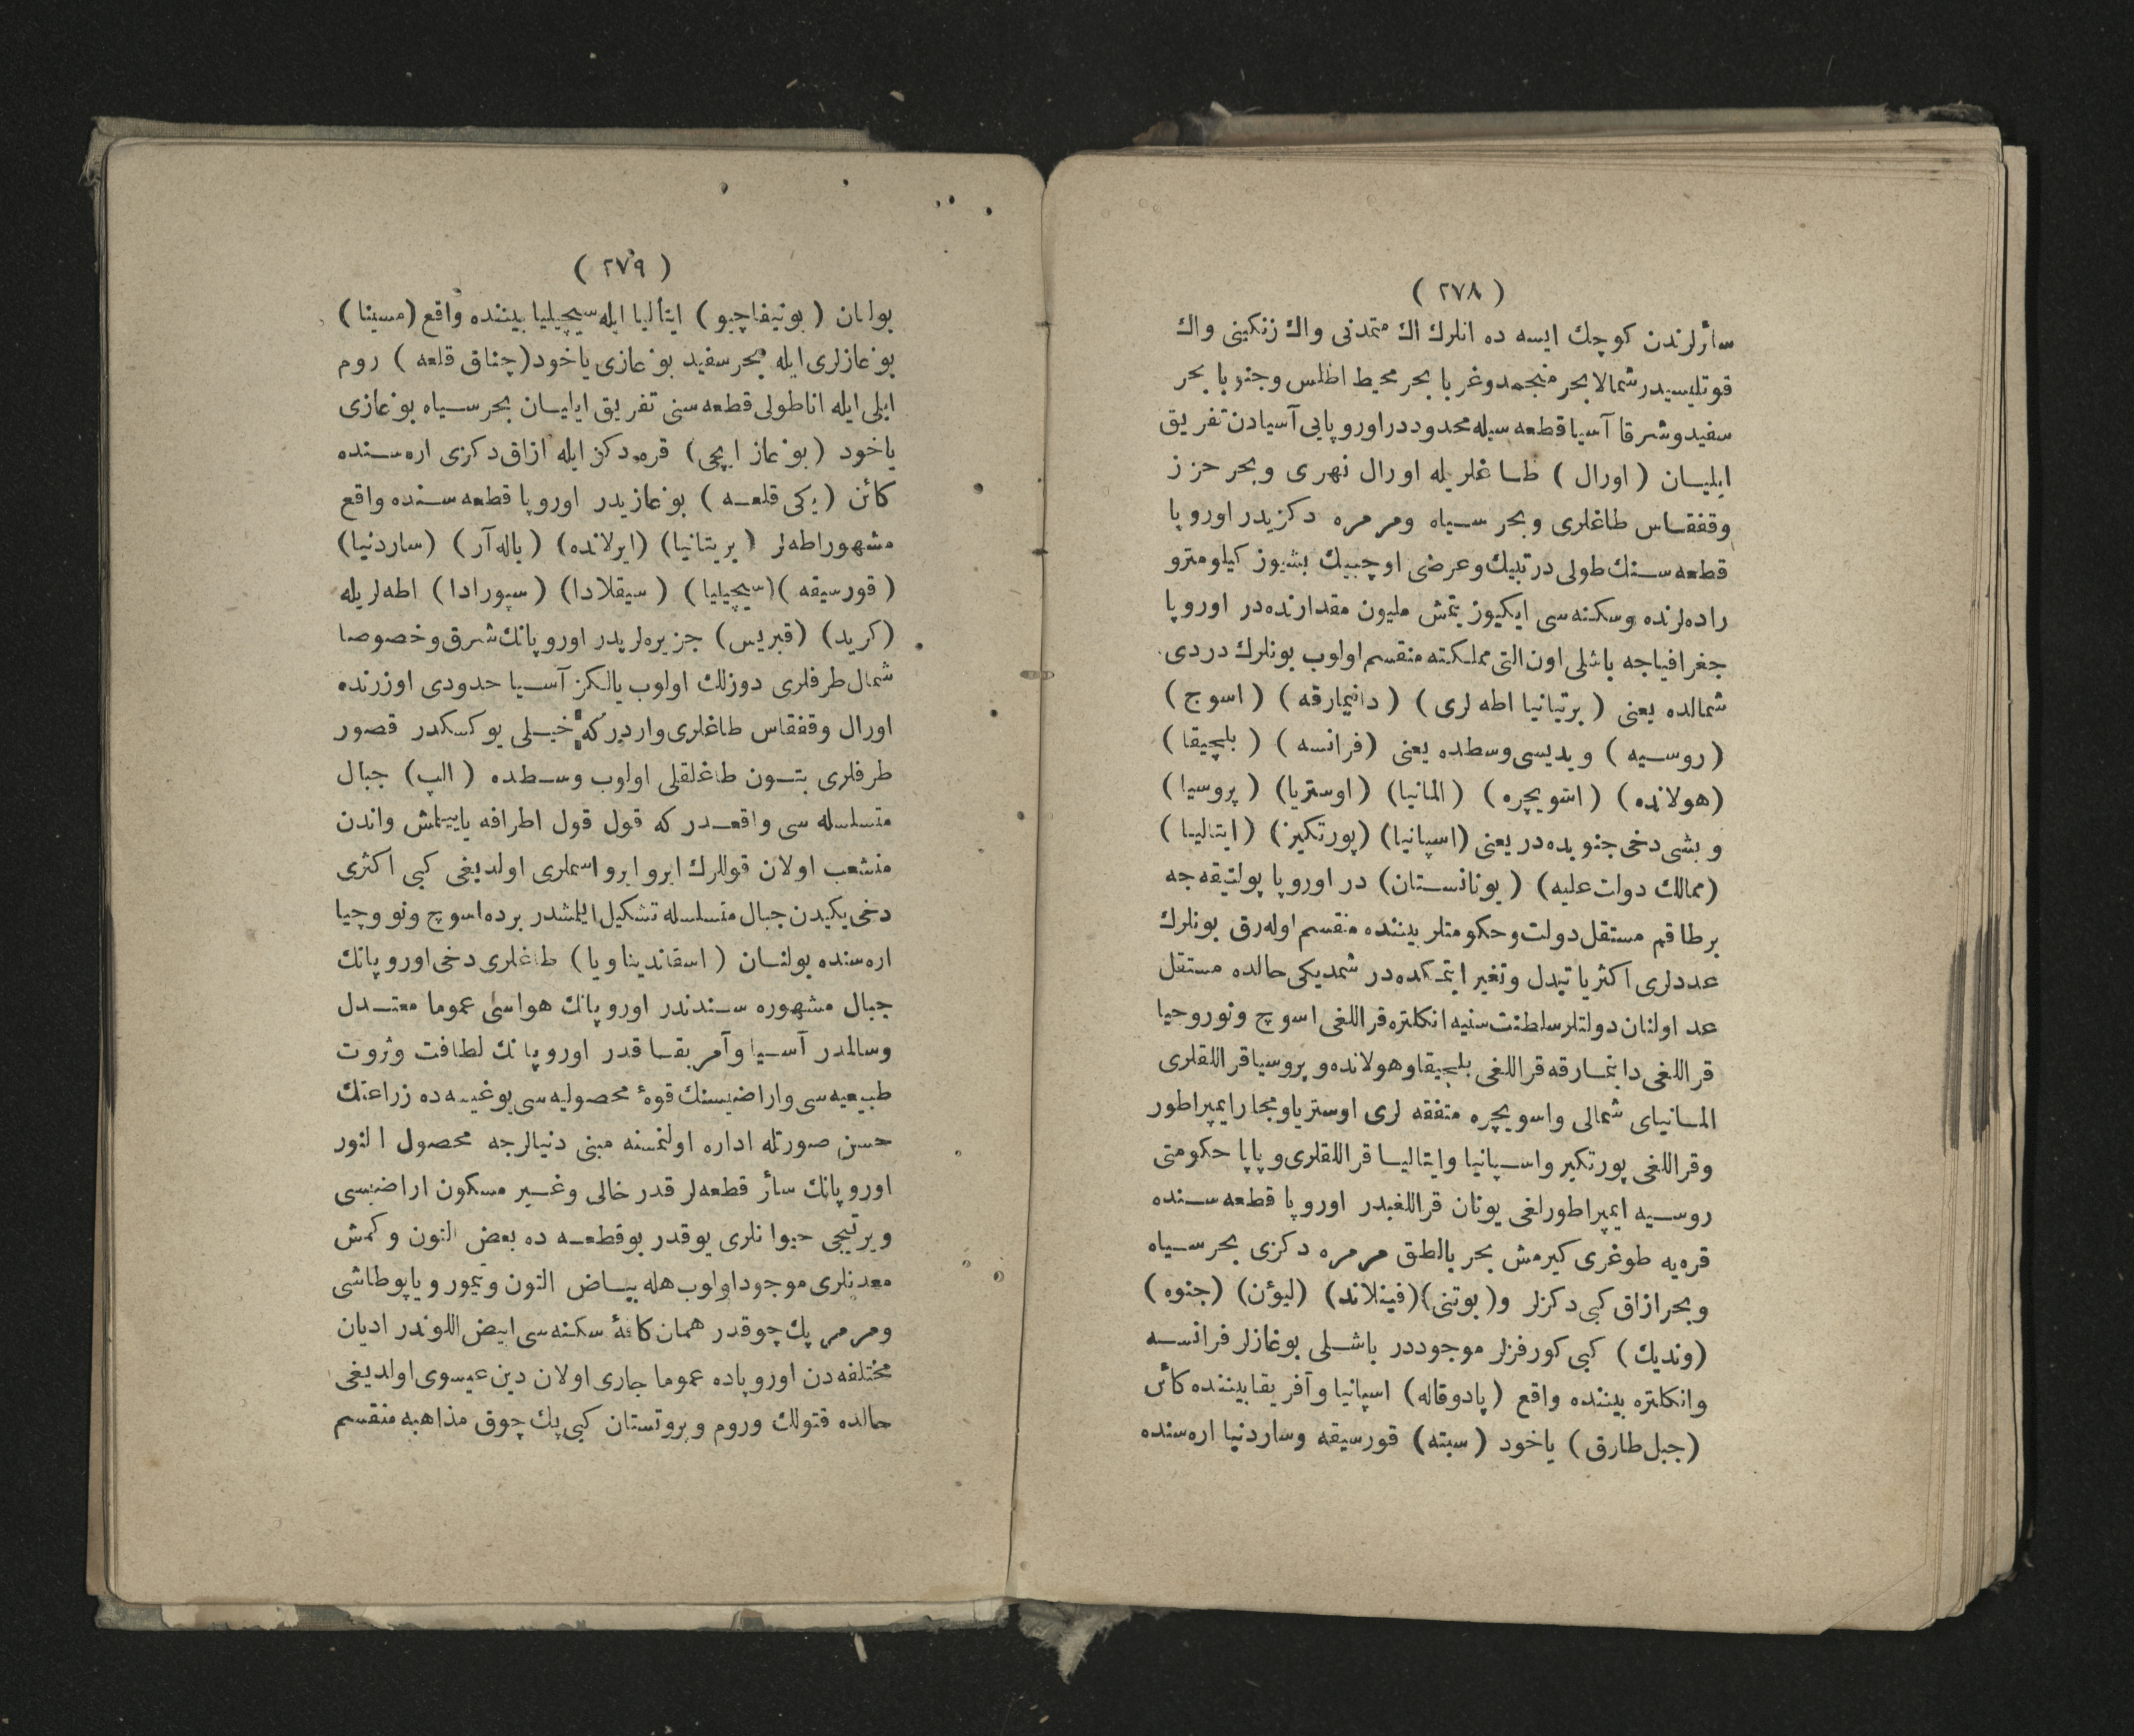 ( ٢٧٨ )
سائرلرندن كوچك ايسه ده انلرك اك متمدنى واك زنكينى واك
قوتليسيدر شمالا بحر منجمد وغربا بحر محيط اطلس وجنوبا بحر
سفيد وشرقا آسيا قطعه سيله محدوددر اوروپايى آسيادن تفريق
ايليان ( اورال ) طاغلريله اورال نهرى وبحر حزز
وقفقاس طاغلرى وبحر سياه ومرمره دكزيدر اوروپا
قطعه سنك طولى درتبيك وعرضى اوچبيك بشيوز كيلومترو
راده لرنده وسكنه سى ايكيوز يتمش مليون مقدارنده در اوروپا
جغرافياجه باشلى اون التى مملكته منقسم اولوب بونلرك دردى
شمالده يعنى ( برتيانيا اطه لرى ) ( دانيمارقه ) ( اسوج )
( روسيه ) ويديسى وسطده يعنى ( فرانسه ) ( بلچيقا )
( هولانده ) ( اسويچره ) ( المانيا ) ( اوستريا ) ( پروسيا )
وبشى دخى جنوبده در يعنى ( اسپانيا ) ( پورتكيز ) ( ايتاليا )
( ممالك دولت عليه ) ( يونانستان ) در اوروپا پولتيقه جه
برطاقم مستقل دولت وحكومتلر بيننده منقسم اوله رق بونلرك
عددلرى اكثريا تبدل وتغير ايتمكده در شمديكى حالده مستقل
عد اولنان دولتلر سلطنت سنيه انكلتره قراللغى اسوچ ونوروجيا
قراللغى دانيمارقه قراللغى بلچيقا وهولانده وپروسيا قراللقلرى
المانياى شمالى واسويچره متفقه لرى اوستريا ومجار ايمپراطور
وقراللغى پورتكيز واسپانيا وايتاليا قراللقلرى وپاپا حكومتى
روسيه ايمپراطورلغى يونان قراللغيدر اوروپا قطعه سنده
قره يه طوغرى كيرمش بحر بالطق مرمره دكزى بحر سياه
وبحر ازاق كبى دكزلر و ( بوتنى ) ( فينلاند ) ( ليؤن ) ( جنوه )
( ونديك ) كبى كورفزلر موجوددر باشلى بوغازلر فرانسه
وانكلتره بيننده واقع ( پادوقاله ) اسپانيا وآفريقا بيننده كائن
( جبل طارق ) ياخود ( سبته ) قورسيقه وساردنيا اره سنده
( ٢٧٩ )
بولنان ( بونيفاچيو ) ايتاليا ايله سيچيليا بيننده واقع ( مسينا )
بوغازلرى ايله بحر سفيد بوغازى ياخود ( چناق قلعه ) روم
ايلى ايله اناطولى قطعه سنى تفريق ايليان بحر سياه بوغازى
ياخود ( بوغاز ايچى ) قره دكز ايله ازاق دكزى اره سنده
كائن ( يكى قلعه ) بوغازيدر اوروپا قطعه سنده واقع
مشهور اطه لر ( بريتانيا ) ( ايرلانده ) ( باله آر ) ( ساردنيا )
( قورسيقه ) ( سيچيليا ) ( سيقلادا ) ( سپورادا ) اطه لريله
( كريد ) ( قبريس ) جزيره لريدر اوروپانك شرق وخصوصا
شمال طرفلرى دوزلك اولوب يالكز آسيا حدودى اوزرنده
اورال وقفقاس طاغلرى واردر كه خيلى يوكسكدر قصور
طرفلرى بتون طاغلقلى اولوب وسطده ( الپ ) جبال
متسلسله سى واقعدر كه قول قول اطرافه يايلمش واندن
منشعب اولان قوللرك ايرو ايرو اسملرى اولديغى كبى اكثرى
دخى يكيدن جبال متسلسله تشكيل ايلمشدر برده اسوچ ونووجيا
اره سنده بولنان ( اسقانديناويا ) طاغلرى دخى اوروپانك
جبال مشهوره سندندر اوروپانك هواسى عموما معتدل
وسالمدر آسيا وآمريقا قدر اوروپانك لطافت وثروت
طبيعيه سى واراضيسنك قوۀ محصوليه سى يوغيسه ده زراعتك
حسن صورتله اداره اولنمسنه مبنى دنيالرجه محصول النور
اوروپانك سائر قطعه لر قدر خالى وغير مسكون اراضيسى
ويرتيجى حيوانلرى يوقدر بوقطعه ده بعض التون وكمش
معدنلرى موجود اولوب هله بياض التون وتيمور وياپوطاشى
ومرمر پك چوقدر همان كافۀ سكنه سى ابيض اللوندر اديان
مختلفه دن اوروپاده عموما جارى اولان دين عيسوى اولديغى
حالده قتولك وروم وپروتستان كبى پك چوق مذاهبه منقسم